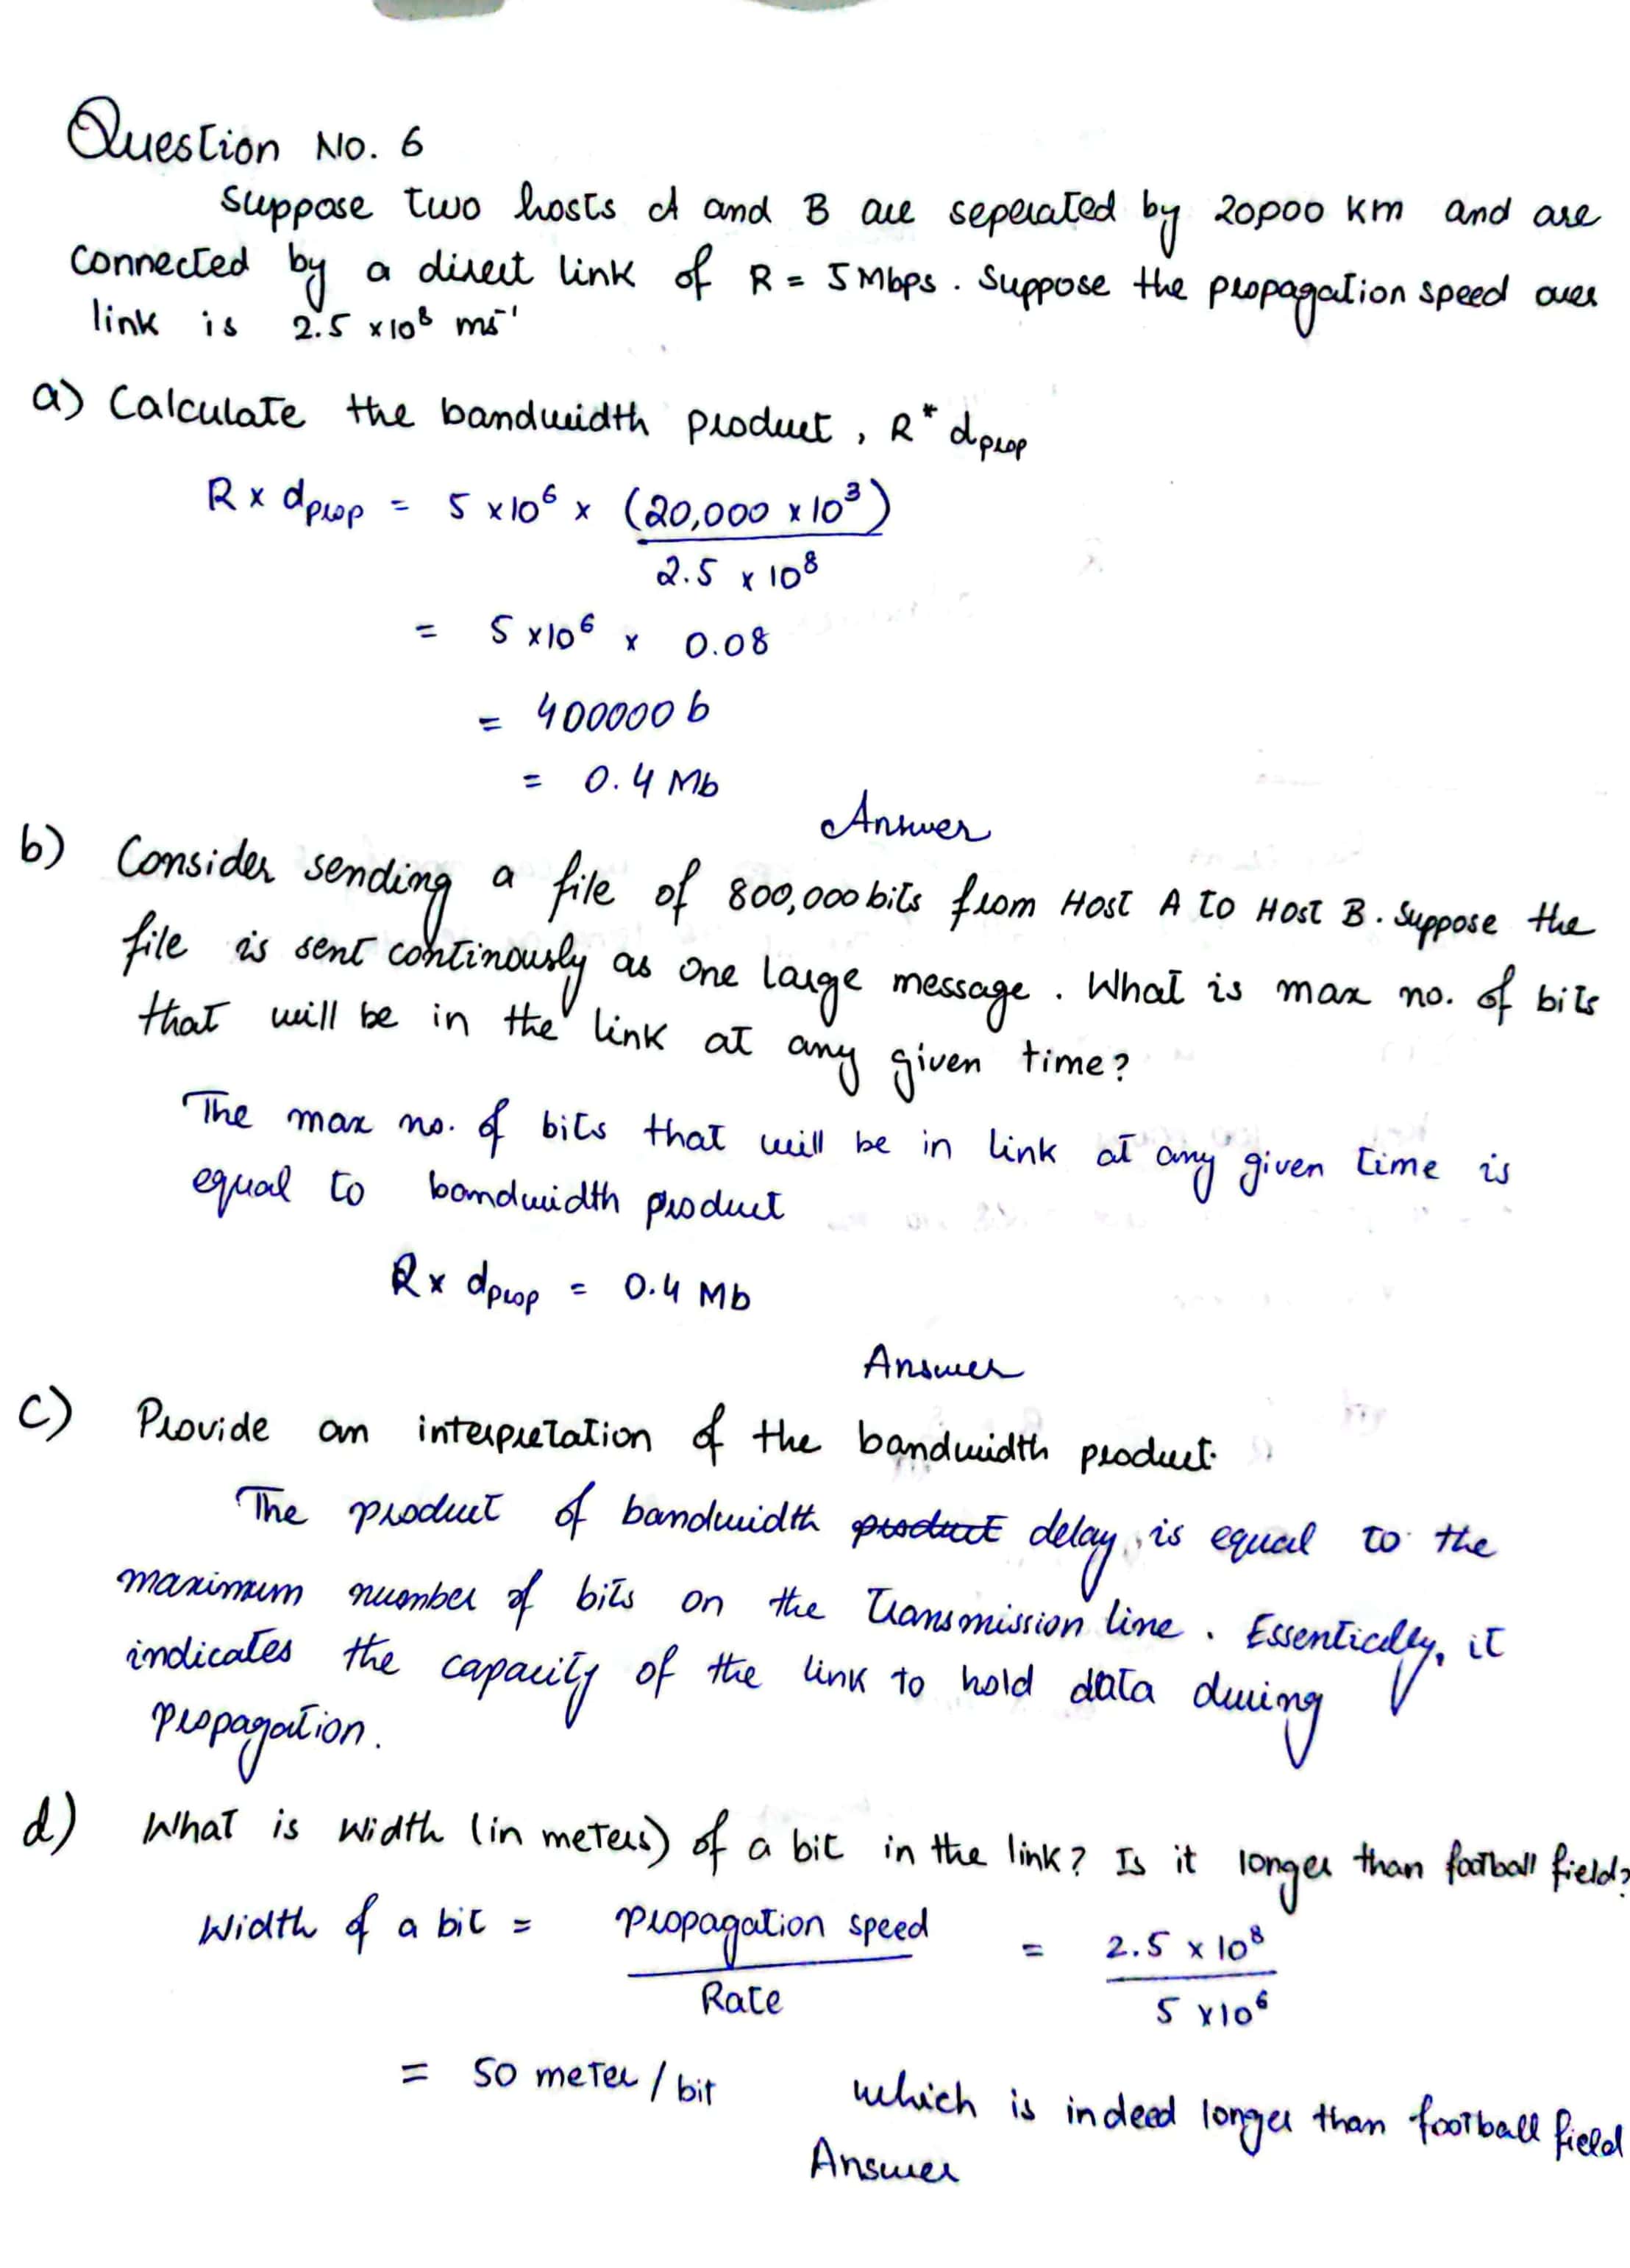 Question No. 6
Suppose two hosts A and B are seperated by 20,000 km and are
connected by a direct link of R = 5 Mbps. Suppose the propagation speed over
link is 2.5 x 10⁸ ms⁻¹
a) Calculate the bandwidth product, R * d_prop
R x d_prop = 5 x 10⁶ x (20,000 x 10³)
2.5 x 10⁸
= 5 x 10⁶ x 0.08
= 400000 b
= 0.4 Mb
Answer
b) Consider sending a file of 800,000 bits from Host A to Host B. Suppose the
file is sent continously as one large message. What is max no. of bits
that will be in the link at any given time?
The max no. of bits that will be in link at any given time is
equal to bandwidth product
R x d_prop = 0.4 Mb
Answer
c) Provide an interpretation of the bandwidth product.
The product of bandwidth product delay, is equal to the
maximum number of bits on the transmission line. Essentically, it
indicates the capacity of the link to hold data during
propagation.
d) What is width (in meters) of a bit in the link? Is it longer than football field?
Width of a bit = propagation speed = 2.5 x 10⁸
Rate 5 x 10⁶
= 50 meter / bit which is indeed longer than football field
Answer